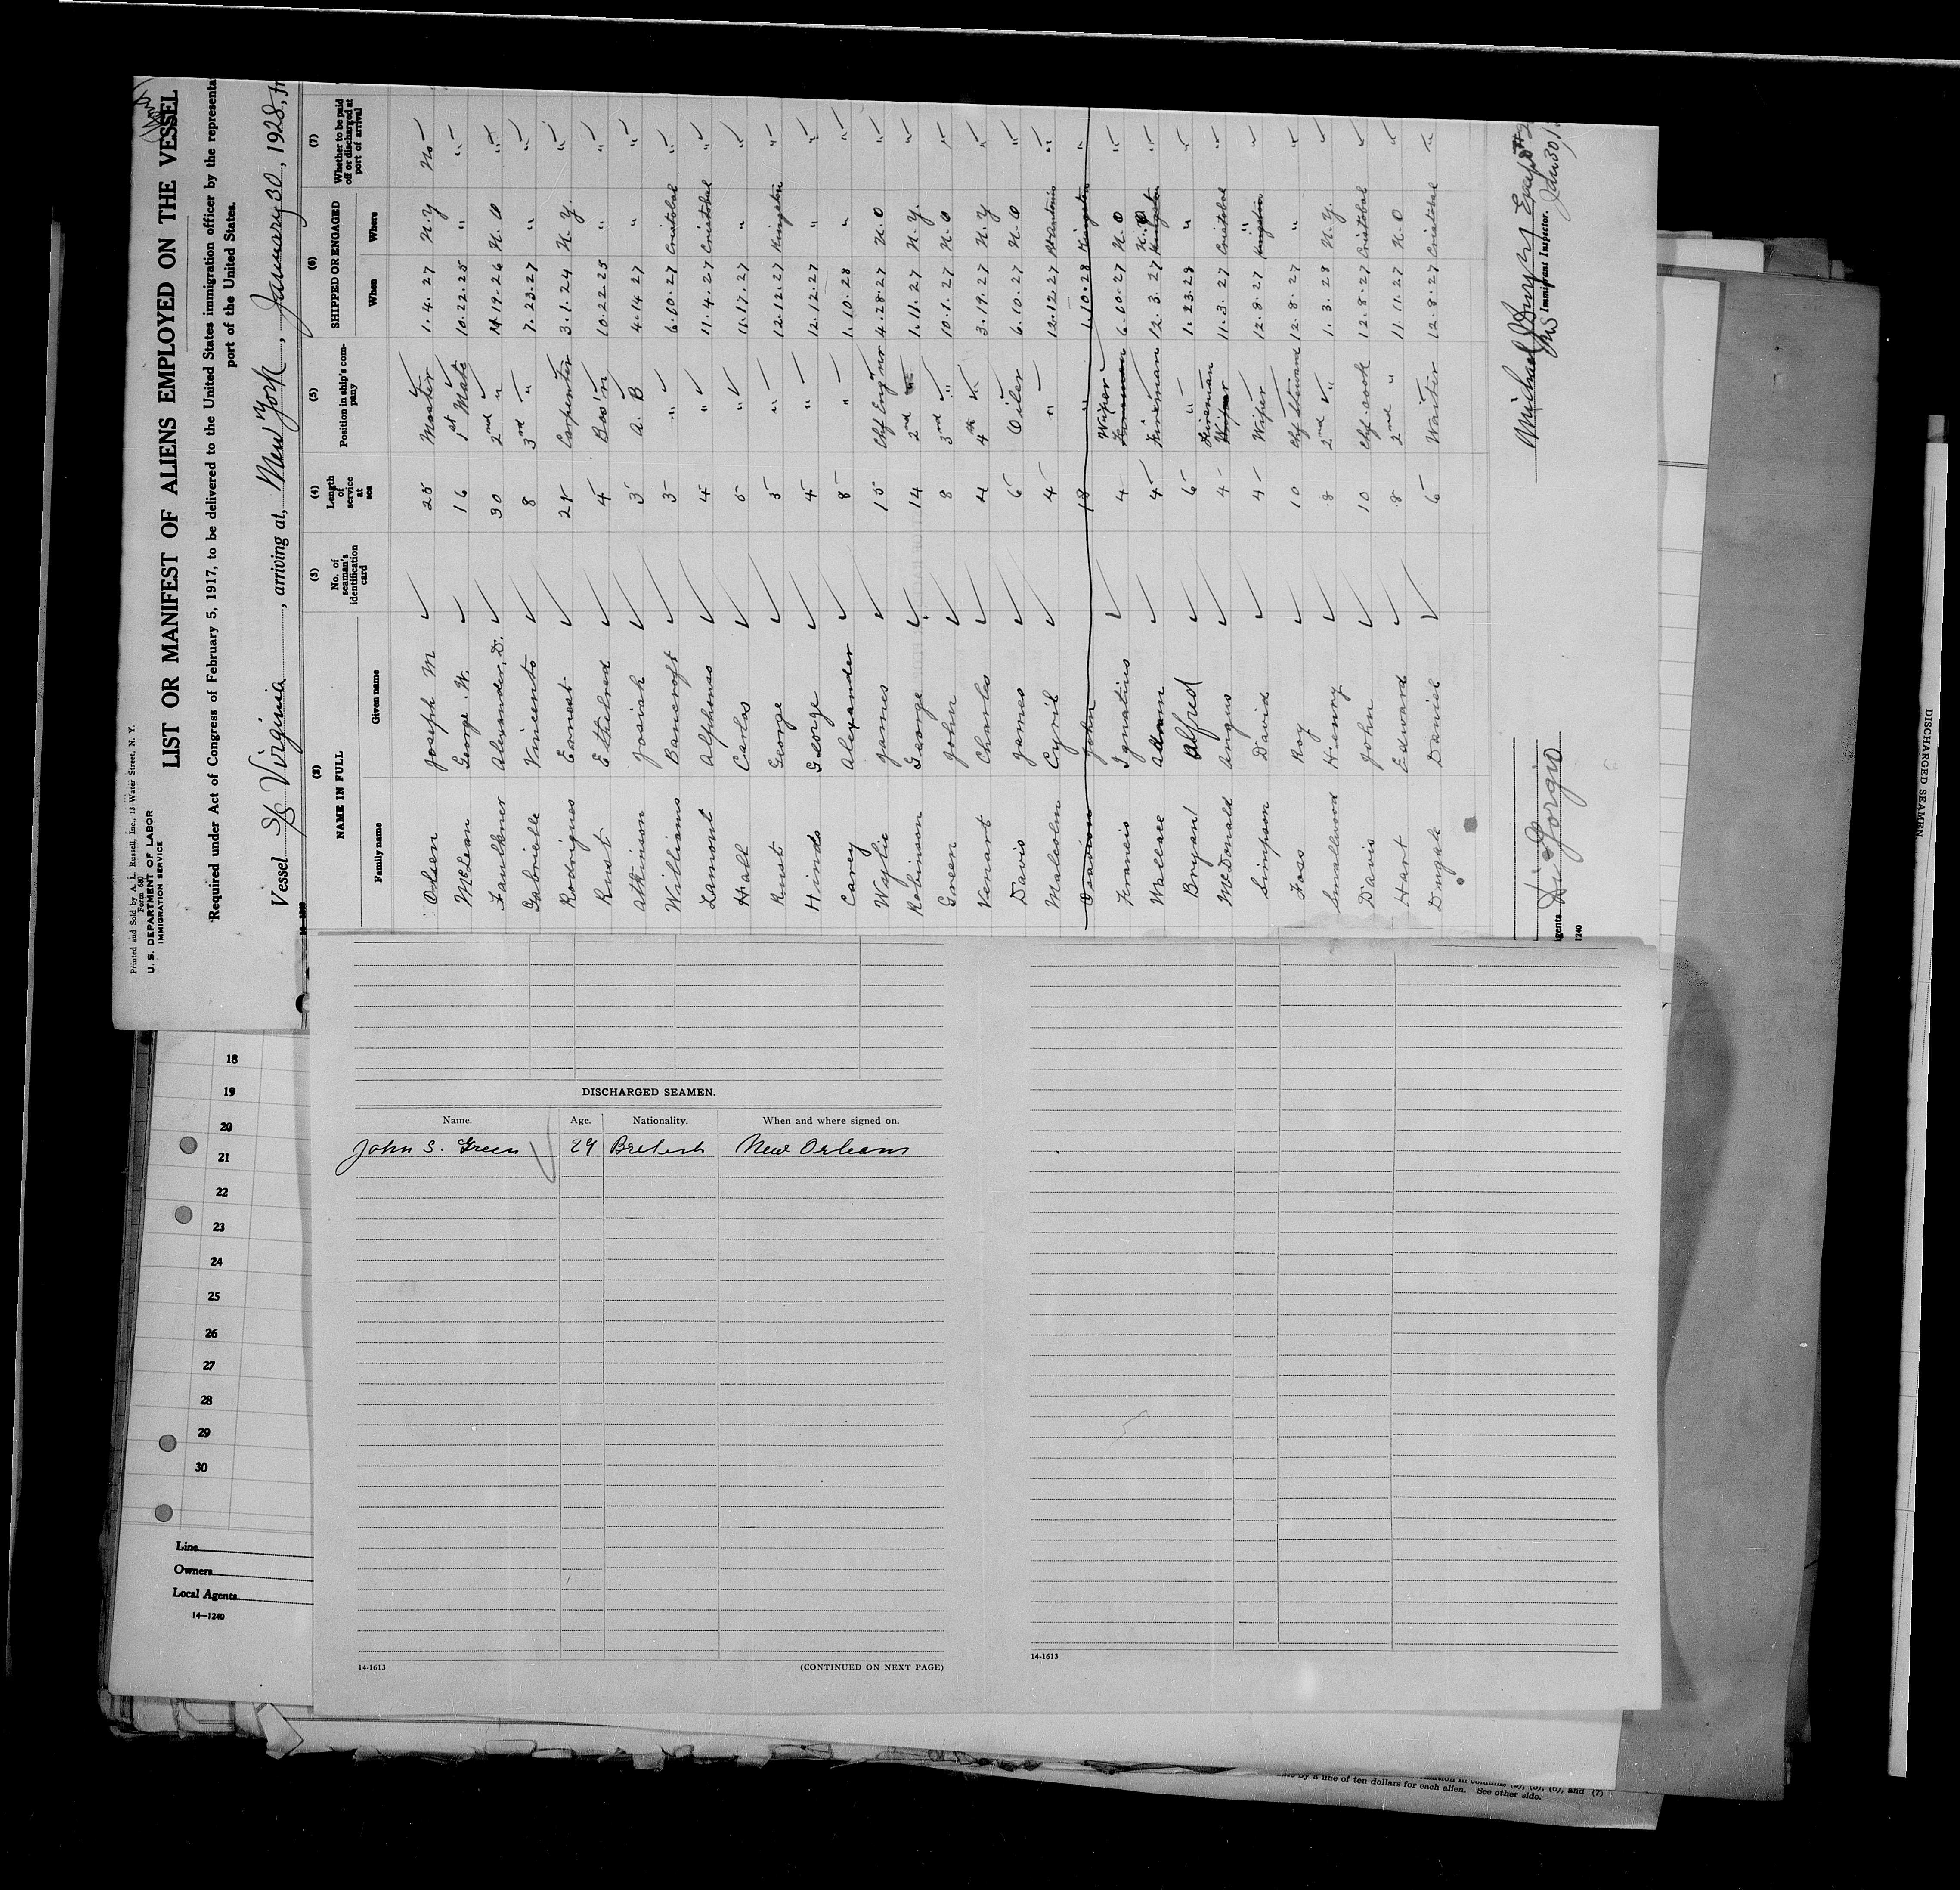 Printed and Sold by A. L. Russell, Inc., 13 Water Street, N. Y.
Form 680
U. S. DEPARTMENT OF LABOR
IMMIGRATION SERVICE
LIST OR MANIFEST OF ALIENS EMPLOYED ON THE VESSEL
Required under Act of Congress of February 5, 1917, to be delivered to the United States immigration officer by the representa
port of the United States.
Vessel S/S Virginia, arriving at, New York, January 30, 1928, fr
(2) (3) (4) (5) (6) (7)
NAME IN FULL No. of seaman's identification card Length of service at sea Position in ship's company SHIPPED OR ENGAGED Whether to be paid off or discharged at port of arrival
Family name Given name When Where
Olsen Joseph M 25 Master 1.4.27 N.Y No
McLean George W. 16 1st Mate 10.22.25 "  "
Faulkner Alexander D. 30 2nd " 19.26 N.O "
Gabrielle Vincento 8 3rd " 7.23.27 " "
Rodrigues Ernest 25 Carpenter 3.1.24 N.Y. "
Rust Etheldred 4 Bos'n 10.22.25 " "
Atkinson Josiah 3 A.B 4.14.27 " "
Williams Bancroft 3 " 6.10.27 Cristobal "
Lamont Alphonso 4 " 11.4.27 Cristobal "
Hall Carlos 5 " 11.17.27 " "
Rust George 3 " 12.12.27 Kingston "
Hinds George 4 " 12.12.27 " "
Carey Alexander 8 " 1.10.28 " "
Wylie James 15 Chf Enginr 4.28.27 N.O "
Robinson George 14 2nd " 1.11.27 N.Y. "
Green John 8 3rd " 10.1.27 N.O "
Venart Charles 4 4th " 3.19.27 N.Y "
Davis James 6 Oiler 6.10.27 N.O "
Malcolm Cyril 4 " 12.12.27 "
John 18 " 1.10.28 Kingston "
Francis Ignatius 4 Wiper Fireman 6.10.27 N.O "
Wallace Adam 4 Fireman 12.3.27 N.O Kingston "
Bryan Alfred 6 " 1.23.28 " "
McDonald Angus 4 Fireman Wiper 11.3.27 Cristobal "
Simpson David 4 Wiper 12.8.27 " Kingston "
Foso Roy 10 Chf Steward 12.8.27 " "
Smallwood Henry 8 2nd " 1.3.28 N.Y. "
Davis John 10 Chf cook 12.8.27 Cristobal "
Hart Edward 8 2nd " 11.11.27 N.O "
Daniel 6 Waiter 12.8.27 Cristobal "
Immigrant Inspector.
Jan 30, 1
Agents Di Giorgio
1240
18
19
20
21
22
23
24
25
26
27
28
29
30
Line
Owners
Local Agents
14—1240
DISCHARGED SEAMEN.
Name. Age. Nationality. When and where signed on.
John S. Green 29 British New Orleans
14-1613
(CONTINUED ON NEXT PAGE)
14-1613
by a fine of ten dollars for each alien. See other side.
DISCHARGED SEAMEN